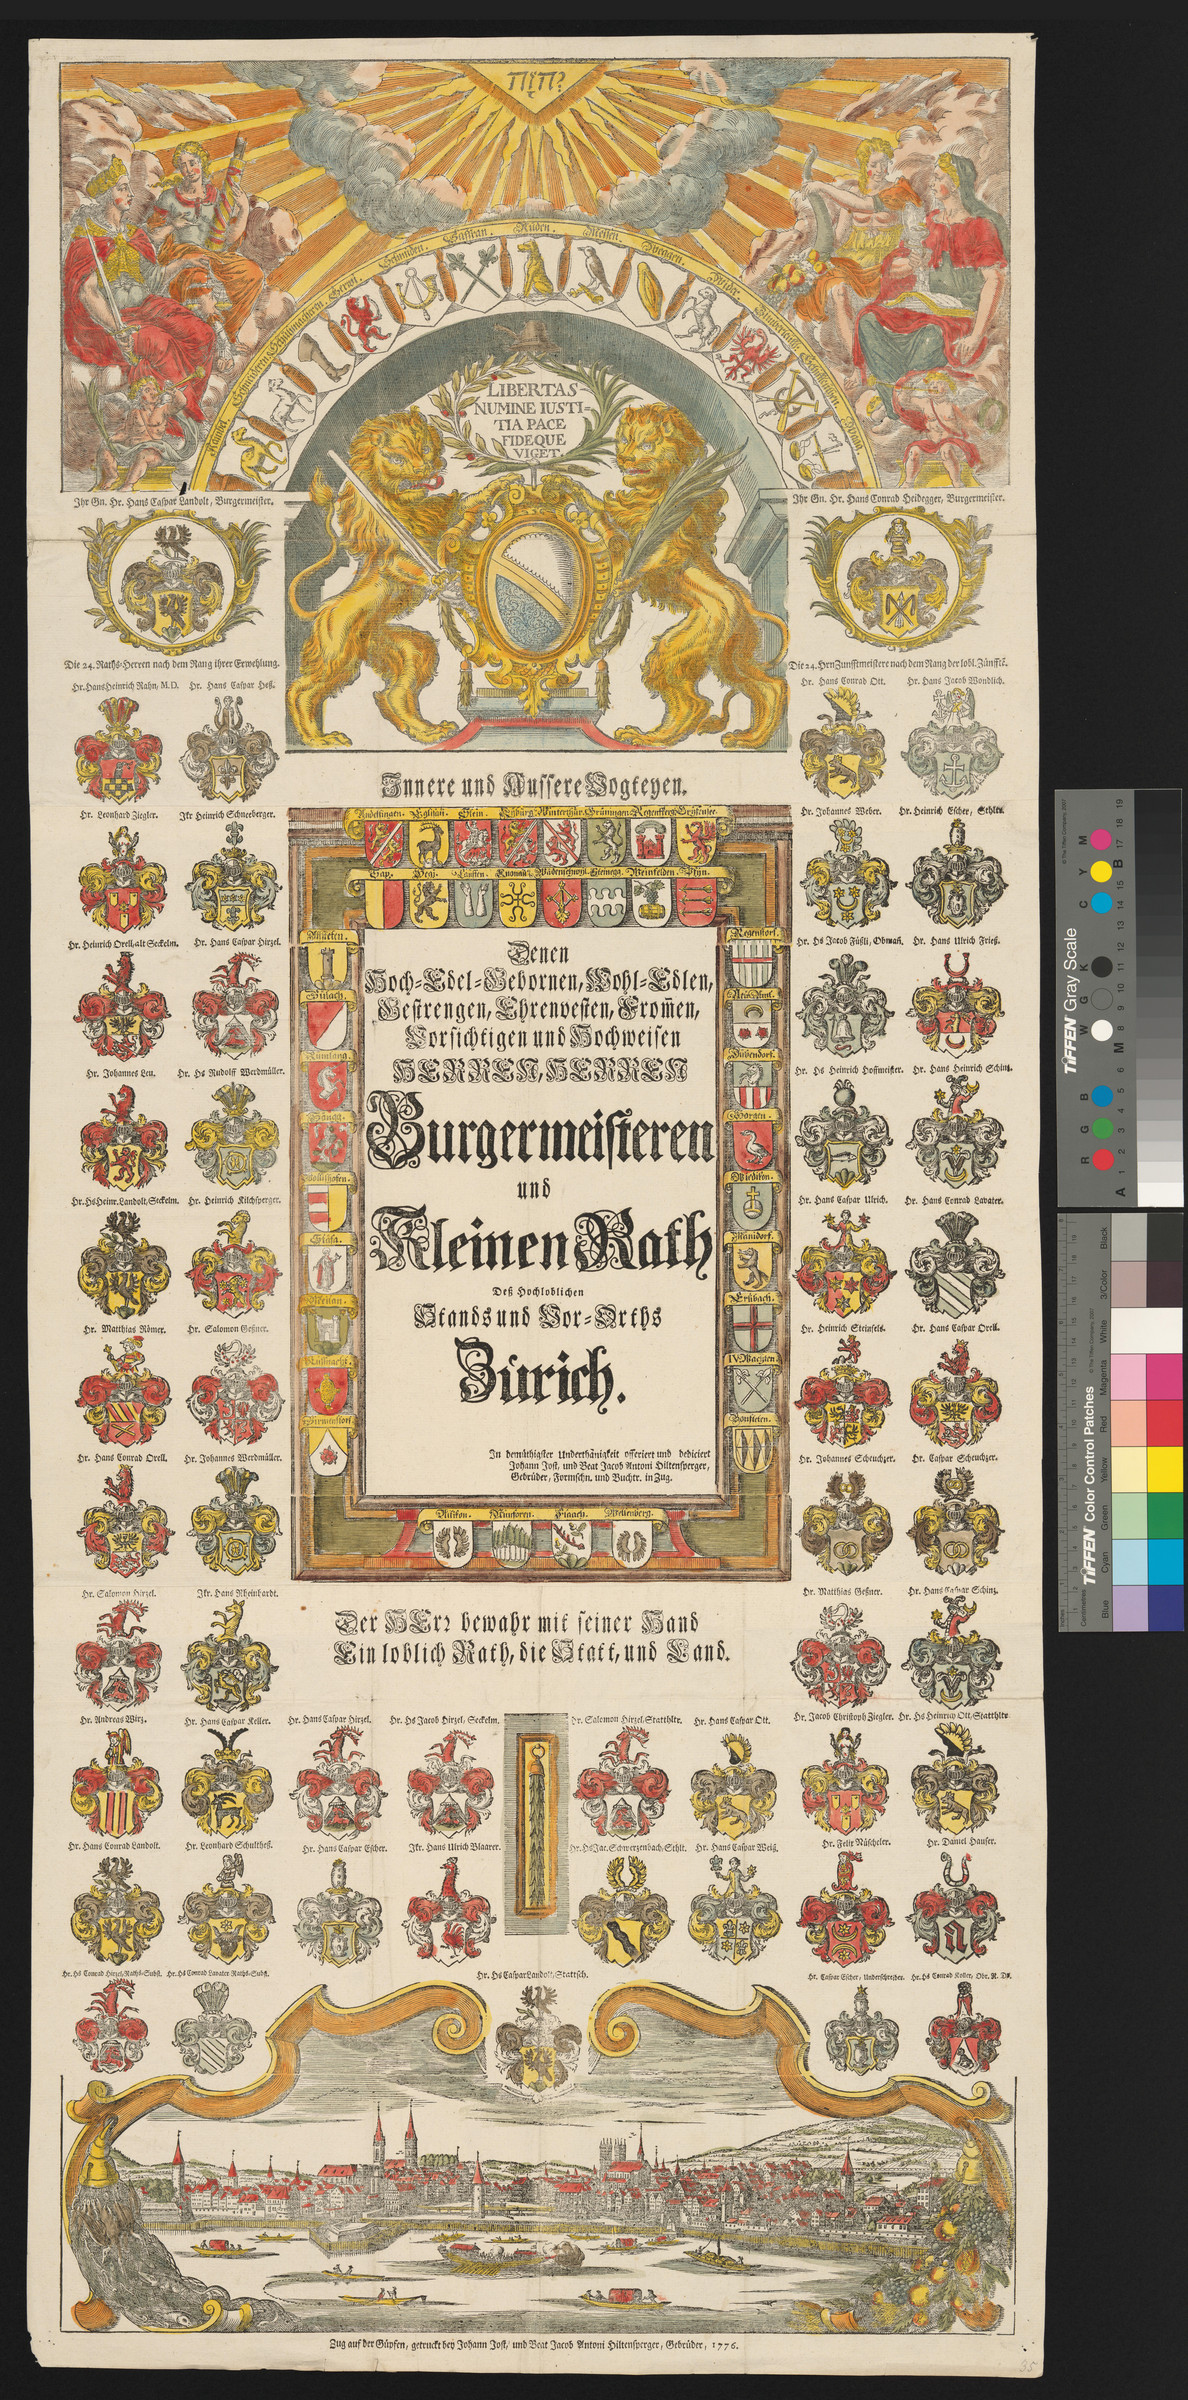 יהוה
Kämbel. Schneideren. Schuhmacheren. Gerwi. Schmiden. Saffran. Rüden. Meisen. Weggen. Wider. Zimmerleuthe. Schiffleuthen. Waag.
LIBERTAS
NUMINE IUSTI=
TIA PACE
FIDEQUE
VIGET.
Ihr Gn. Hr. Hans Caspar Landolt, Burgermeister.
Ihr Gn. Hr. Hans Conrad Heidegger, Burgermeister.
Die 24. Raths-Herren nach dem Rang ihrer Erwehlung.
Die 24. Hrn Zunfftmeistere nach dem Rang der lobl. Zünfftē.
Hr. Hans Heinrich Rahn, M.D. Hr. Hans Caspar Heß.
Hr. Hans Conrad Ott. Hr. Hans Jacob Wondlich.
Innere und Aussere Vogteyen.
Hr. Leonhard Ziegler. Jkr Heinrich Schneeberger.
Hr. Johannes Weber. Hr. Heinrich Escher, Sthltr.
Andelfingen. Eglisau. Stein. Kyburg. Winterthur. Grüningen. Regensperg. Greifensee.
Sax. Hegi. Lauffen. Knonau. Wädenschweil. Steinegg. Weinfelden. Pfyn.
Hr. Heinrich Orell, alt Seckelm. Hr. Hans Caspar Hirzel.
Hr. Hs Jacob Füßli, Obmañ. Hr. Hans Ulrich Frieß.
Altstetten.
Bülach.
Rümlang.
Höngg.
Wollishofen.
Stäfa.
Meilan.
Küssnacht.
Birmenstorf.
Denen
Hoch-Edel-Gebornen, Wohl-Edlen,
Gestrengen, Ehrenvesten, From̄en,
Vorsichtigen und Hochweisen
HERREN, HERREN
Burgermeisteren
und
Kleinen Rath
Deß Hochloblichen
Stands und Vor-Orths
Zürich.
In demüthigster Underthänigkeit offeriert und dediciert
Johann Jost, und Beat Jacob Antoni Hiltensperger,
Gebrüder, Formschn. und Buchtr. in Zug.
Regenstorf.
Neü-Amt.
Dübendorf.
Horgen.
Wiedikon.
Mänidorf.
Erlibach.
IV. Wachten.
Bonstetten.
Hr. Johannes Leu. Hr. Hs Rudolff Werdmüller.
Hr. Hs Heinrich Hoffmeister. Hr. Hans Heinrich Schinz.
Hr. Hs Heinr. Landolt, Seckelm. Hr. Heinrich Kilchsperger.
Hr. Hans Caspar Ulrich. Hr. Hans Conrad Lavater.
Hr. Matthias Römer. Hr. Salomon Geßner.
Hr. Heinrich Steinfels. Hr. Hans Caspar Orell.
Hr. Hans Conrad Orell. Hr. Johannes Werdmüller.
Hr. Johannes Scheuchzer. Hr. Caspar Scheuchzer.
Altikon. Neunforen. Flaach. Wellenberg.
Hr. Salomon Hirzel. Jkr. Hans Rheinhardt.
Hr. Matthias Geßner. Hr. Hans Caspar Schinz.
Der HErr bewahr mit seiner Hand
Ein loblich Rath, die Statt, und Land.
Hr. Andreas Wirz. Hr. Hans Caspar Keller. Hr. Hans Caspar Hirzel. Hr. Hs Jacob Hirzel, Seckelm. Hr. Salomon Hirzel, Statthltr. Hr. Hans Caspar Ott. Hr. Jacob Christoph Ziegler. Hr. Hs Heinrich Ott, Statthltr
Hr. Hans Conrad Landolt. Hr. Leonhard Schultheß. Hr. Hans Caspar Escher. Jkr. Hans Ulrich Blaarer. Hr. Hs Jac. Schwerzenbach, Sthlt. Hr. Hans Caspar Weiß. Hr. Felix Nüscheler. Hr. Daniel Hauser.
Hr. Hs Conrad Hirzel, Raths-Subst. Hr. Hs Conrad Lavater Raths-Subst. Hr. Hs Caspar Landolt, Stattsch. Hr. Caspar Escher, Underschreiber. Hr. Hs Conrad Keller, Obr. R. Dr.
Zug auf der Güpfen, getruckt bey Johann Jost, und Beat Jacob Antoni Hiltensperger, Gebrüder, 1776.
35
TIFFEN Gray Scale
© The Tiffen Company, 2007
R G B W G K C Y M
A 1 2 3 4 5 6 M 8 9 10 11 12 13 14 15 B 17 18 19
TIFFEN Color Control Patches
© The Tiffen Company, 2007
Blue Cyan Green Yellow Red Magenta White 3/Color Black
Centimetres
Inches